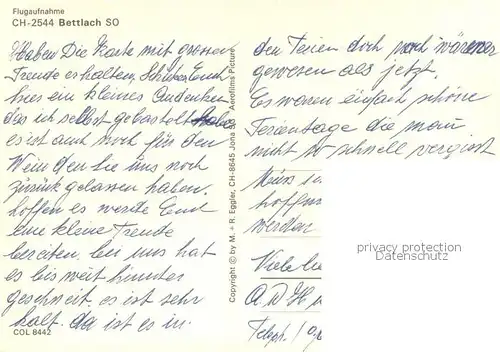 Flugaufnahme
CH-2544 Bettlach SO
Haben Die Karte mit grosser
Freude erhalten, Schicke Euch
hier ein kleines Andenken
das ich selbst gebastelt habe
es ist auch noch für den
Wein den Sie uns noch
zurück gelassen haben.
hoffen es werde Euch
eine kleine Freude
bereiten. bei uns hat
es bis weit hinunter
geschneit. es ist sehr
kalt. da ist es in
COL 8442
Copyright © by M. + R. Eggler, CH-8645 Jona SG Aerofilms Picture
den Ferien doch noch wärmer
gewesen als jetzt.
Es waren einfach schöne
Ferientage die man
nicht so schnell vergisst
hoffen
werden
Viele
A D H
Teleph.
privacy protection
Datenschutz